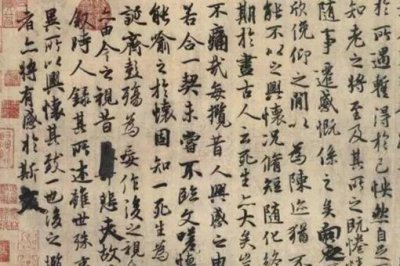 於所遇暫得於己怏然自足
知老之將至及其所之既惓
隨事遷感慨係之矣向之
欣俛仰之間以為陳迹猶不
能不以之興懷況脩短隨化終
期於盡古人云死生亦大矣豈
不痛哉每攬昔人興感之由
若合一契未嘗不臨文嗟悼
能喻之於懷固知一死生為
誕齊彭殤為妄作後之視
亦由今之視昔悲夫故
敘時人錄其所述雖世殊事
異所以興懷其致一也後之攬
者亦將有感於斯文